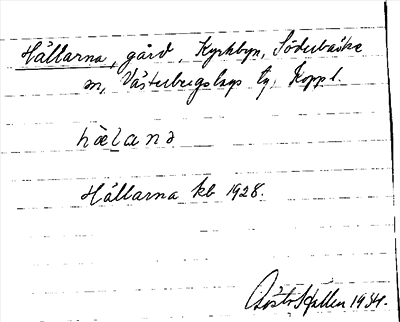 Hållarna, gård, Kyrkbyn, Söderbärke
sn, Västerbergslags tg, Koppl.
hæl̲and
Hållarna kb 1928.
1934.